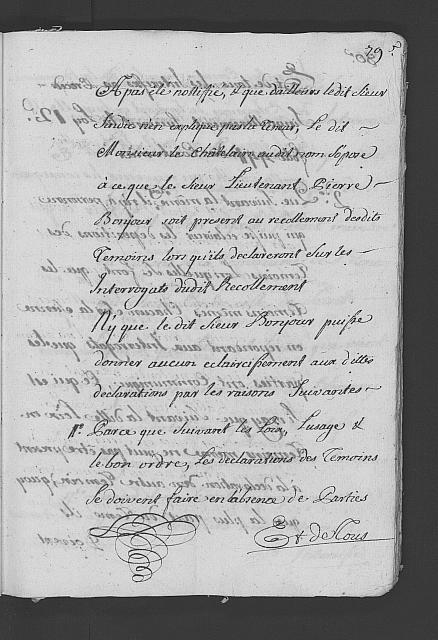 29.
A pas été notiffié, & que d'ailleurs ledit Sieur
Sindic n'en explique pas la teneur, Le dit ~
Monsieur le Châtelain audit nom S'opose
à ce que le Sieur Lieutenant Pierre ~
Bonjour soit present au recollement desdits
Temoins lors qu'ils declareront Sur les ~
Interrogats dudit Recollement
Ny que le dit Sieur Bonjour puisse
donner aucun eclaircissement aux dittes
declarations par les raisons Suivantes ~
1º. Parce que Suivant les Loix, Lusage &
le bon ordre, les declarations des Temoins
Se doivent faire en labsence de Parties
Et de Tous